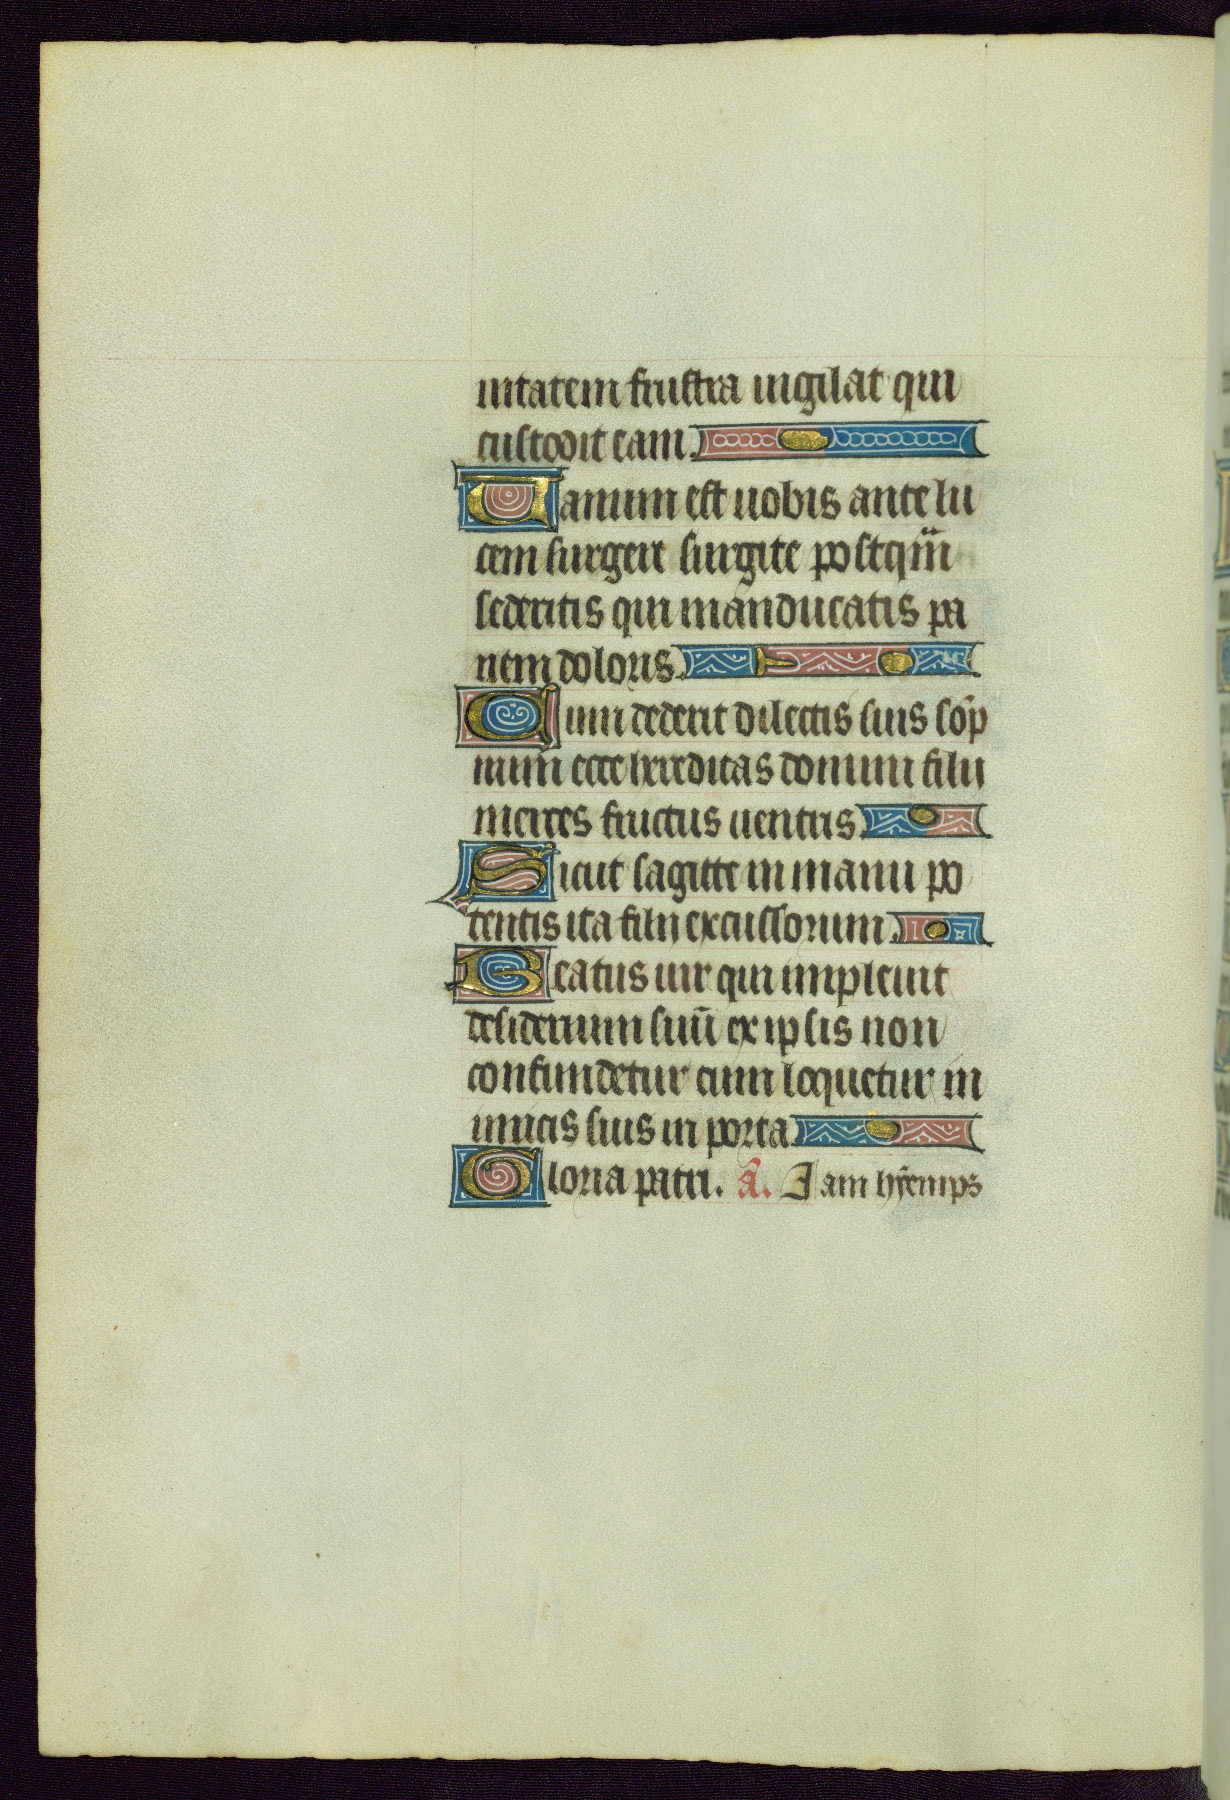 uitatem frustra uigilat qui
custodit eam.
Uanum est uobis ante lu
cem surgere surgite postqm̄
sederitis qui manducatis pa
nem doloris.
Cum dederit dilectis suis sōp
num ecce hereditas domini filii
merces fructus uentris
Sicut sagitte in manu po
tentis ita filii excussorum.
Beatus uir qui impleuit
desiderium suū ex ipsis non
confundetur cum loquetur in
imicis suis in porta
Gloria patri. a. Iam hyemps